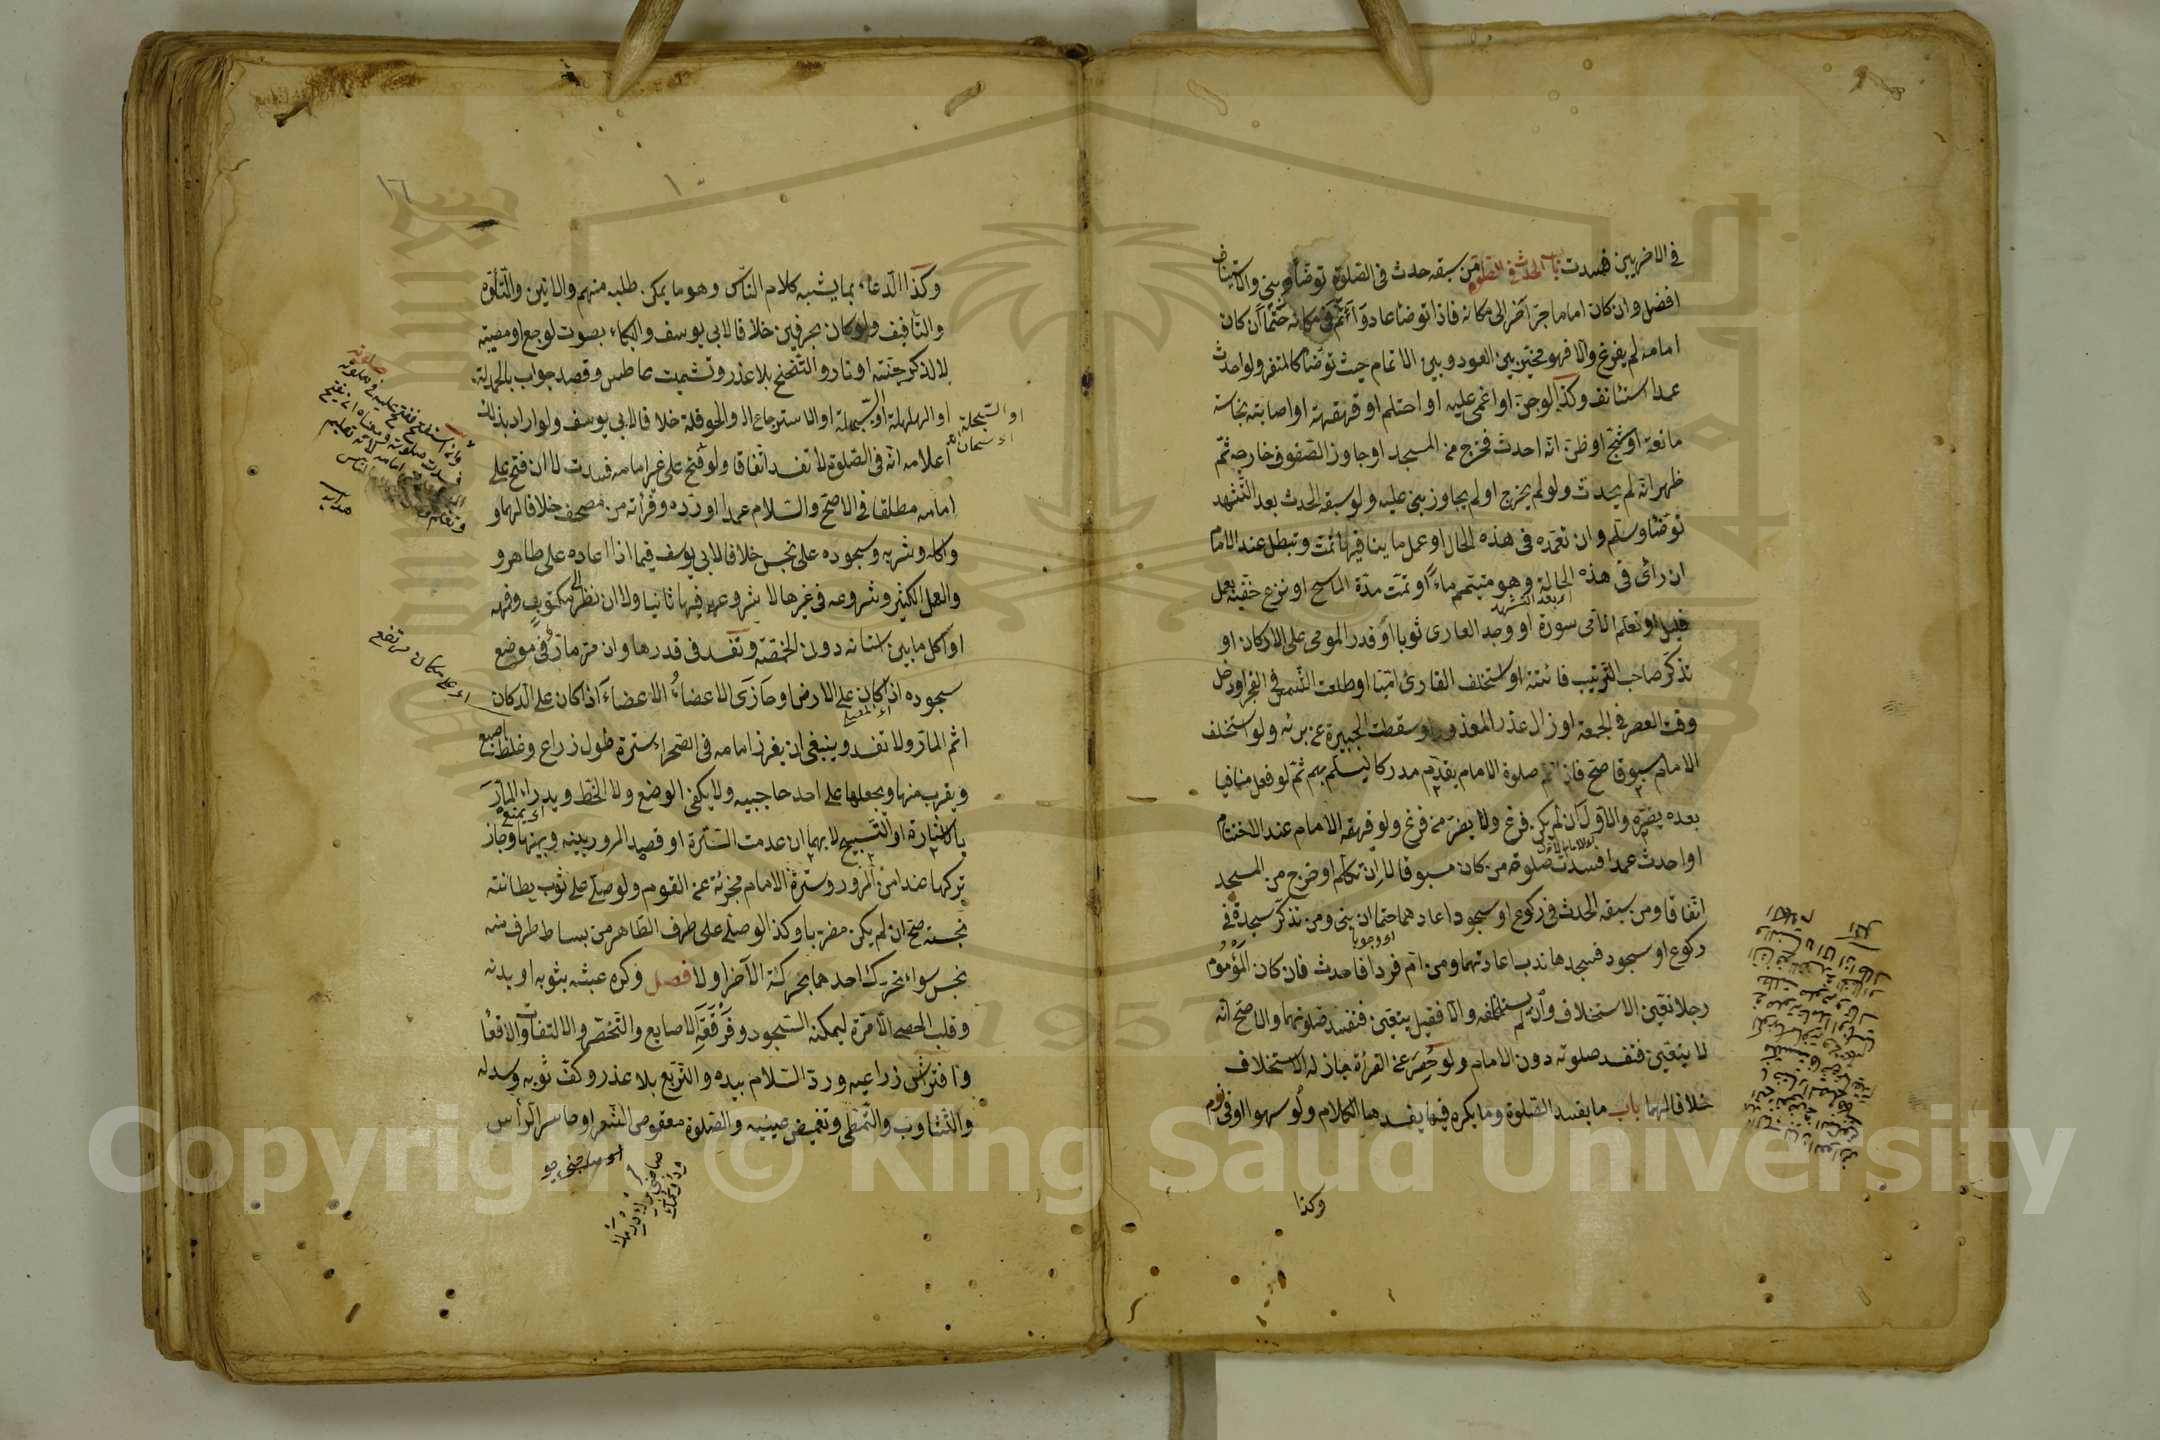 في الاخريين فسدت باب الحدث في الصلوة من سبقه حدث في الصلوة توضأ وبنى والاستيناف
افضل وان كان اماما جرّ آخر الى مكانه فاذا توضأ عاد وأتم في مكانه حتما ان كان
امامه لم يفرغ والا فهو مخيّر بين العود وبين الاتمام حيث توضأ كالمنفرد ولو احدث
عمدا استأنف وكذا لو جنّ او اغمى عليه او احتلم او قهقهه او اصابته نجاسة
مانعة او شجّ او ظنّ انّه احدث فخرج من المسجد او جاوز الصفوف خارجه ثمّ
ظهر انّه لم يحدث ولو لم يخرج او لم يجاوز بنى عليه ولو سبقه الحدث بعد التّشهد
توضأ وسلّم وان تعمّده فى هذه الحال او عمل ما ينافيها تمّت وتبطل عند الامام
ان رأى فى هذه الحالة وهو متيمم ماءً او تمّت مدّة الماسح او نزع خفّيه بعمل
اى بعد التشهد
قليل او تعلّم الامى سورة او وجد العارى ثوبا او قدر المومى على الاركان او
تذكّر صاحب التّرتيب فائتة او استخلف القارئ امّيّا او طلعت الشّمس فى الفجر او دخل
وقت العصر فى الجمعة او زال عذر المعذور او سقطت الجبيرة عن برئه ولو استخلف
الامام مسبوقا صحّ فاذا اتمّ صلوة الامام يقدّم مدركا ليسلّم بهم ثمّ لو فعل منافيا
بعده يضرّه والاوّل ان لم يكن فرغ ولا يضرّ من فرغ ولو قهقه الامام عند الاختتام
او احدث عمدا فسدت صلوة من كان مسبوقا لا ان تكلّم او خرج من المسجد
اتّفاقا ومن سبقه الحدث فى ركوع او سجود اعادهما حتما ان بنى ومن تذكّر سجدة فى
اى وجوبا
ركوع او سجود فسجدها ندب اعادتهما ومن امّ فردا فاحدث فان كان المؤموم
رجلا تعيّن للاستخلاف وان لم يستخلفه والا فقيل يتعيّن فتفسد صلوتهما والاصحّ انّه
لا يتعيّن فتفسد صلوته دون الامام ولو حُصِرَ عن القرأة جاز له الاستخلاف
خلافا لهما باب ما يفسد الصّلوة وما يكره فيها يفسدها الكلام ولو سهوا او فى نوم
وكذا
١٦
١٠
وكذا الدّعاء بما يشبه كلام النّاس وهو ما يمكن طلبه منهم والانين والتّأوّه
والتّأفيف ولو كان بحرفين خلافا لابى يوسف والبكاء بصوت لوجع او مصيبة
لا لذكر جنّته او نار والتّنحنح بلا عذر وتشميت عاطس وقصد جواب بالحمدلة
او الهيللة او السّبحلة او الاسترجاع او الحوقلة خلافا لابى يوسف ولو اراد بذلك
اعلامه انّه فى الصّلوة لا تفسد اتفاقا ولو فتح على غير امامه فسدت لا ان فتح على
امامه مطلقا فى الاصحّ والسّلام عمدا او ردّه وقرأته من مصحف خلافا لهما و
واكله وشربه وسجوده على نجس خلافا لابى يوسف فيما اذا اعاده على طاهر و
والعمل الكثير وشروعه فى غيرها لا شروعه فيها ثانيا ولا ان نظر الى مكتوب وفهمه
او اكل ما بين اسنانه دون الحمّصة وتفسد فى قدرها وان مرّ مارّ فى موضع
سجوده اذا كان على الارض او حاذى الاعضاءُ الاعضاءَ اذا كان على الدّكان
اثم المارّ ولا تفسد وينبغى ان يغرز امامه فى الصّحراء سترة طول ذراع وغلظ اصبع
ويقرب منها ويجعلها على احد حاجبيه ولا يكفى الوضع ولا الخطّ ويدراء المارّ
اى يمنع
بالاشارة او التّسبيح لا بهما ان عدمت السّترة او قصد المرور بينه وبينها وجاز
تركها عند امن المرور وسترة الامام مجزئة عن القوم ولو صلّى على ثوب بطانته
نجسة صحّ ان لم يكن مضربا وكذا لو صلّى على طرف الطّاهر من بساط طرف منه
نجس سواء تحرّك احدهما بحركة الآخر او لا فصل وكره عبثه بثوبه او بدنه
وقلب الحصى الا مرّة ليمكنه السّجود وفَرْقَعَةُ الاصابع والتّخصّر والالتفات والاقعاء
وافتراش ذراعيه وردّ السّلام بيده والتّربّع بلا عذر وكفّ ثوبه وسدله
والتّثاوب والتّمطّى وتغميض عينيه والصّلوة معقوص الشّعر او حاسر الرّأس
او السّبحلة
اى على مكان مرتفع
Copyright © King Saud University
1957